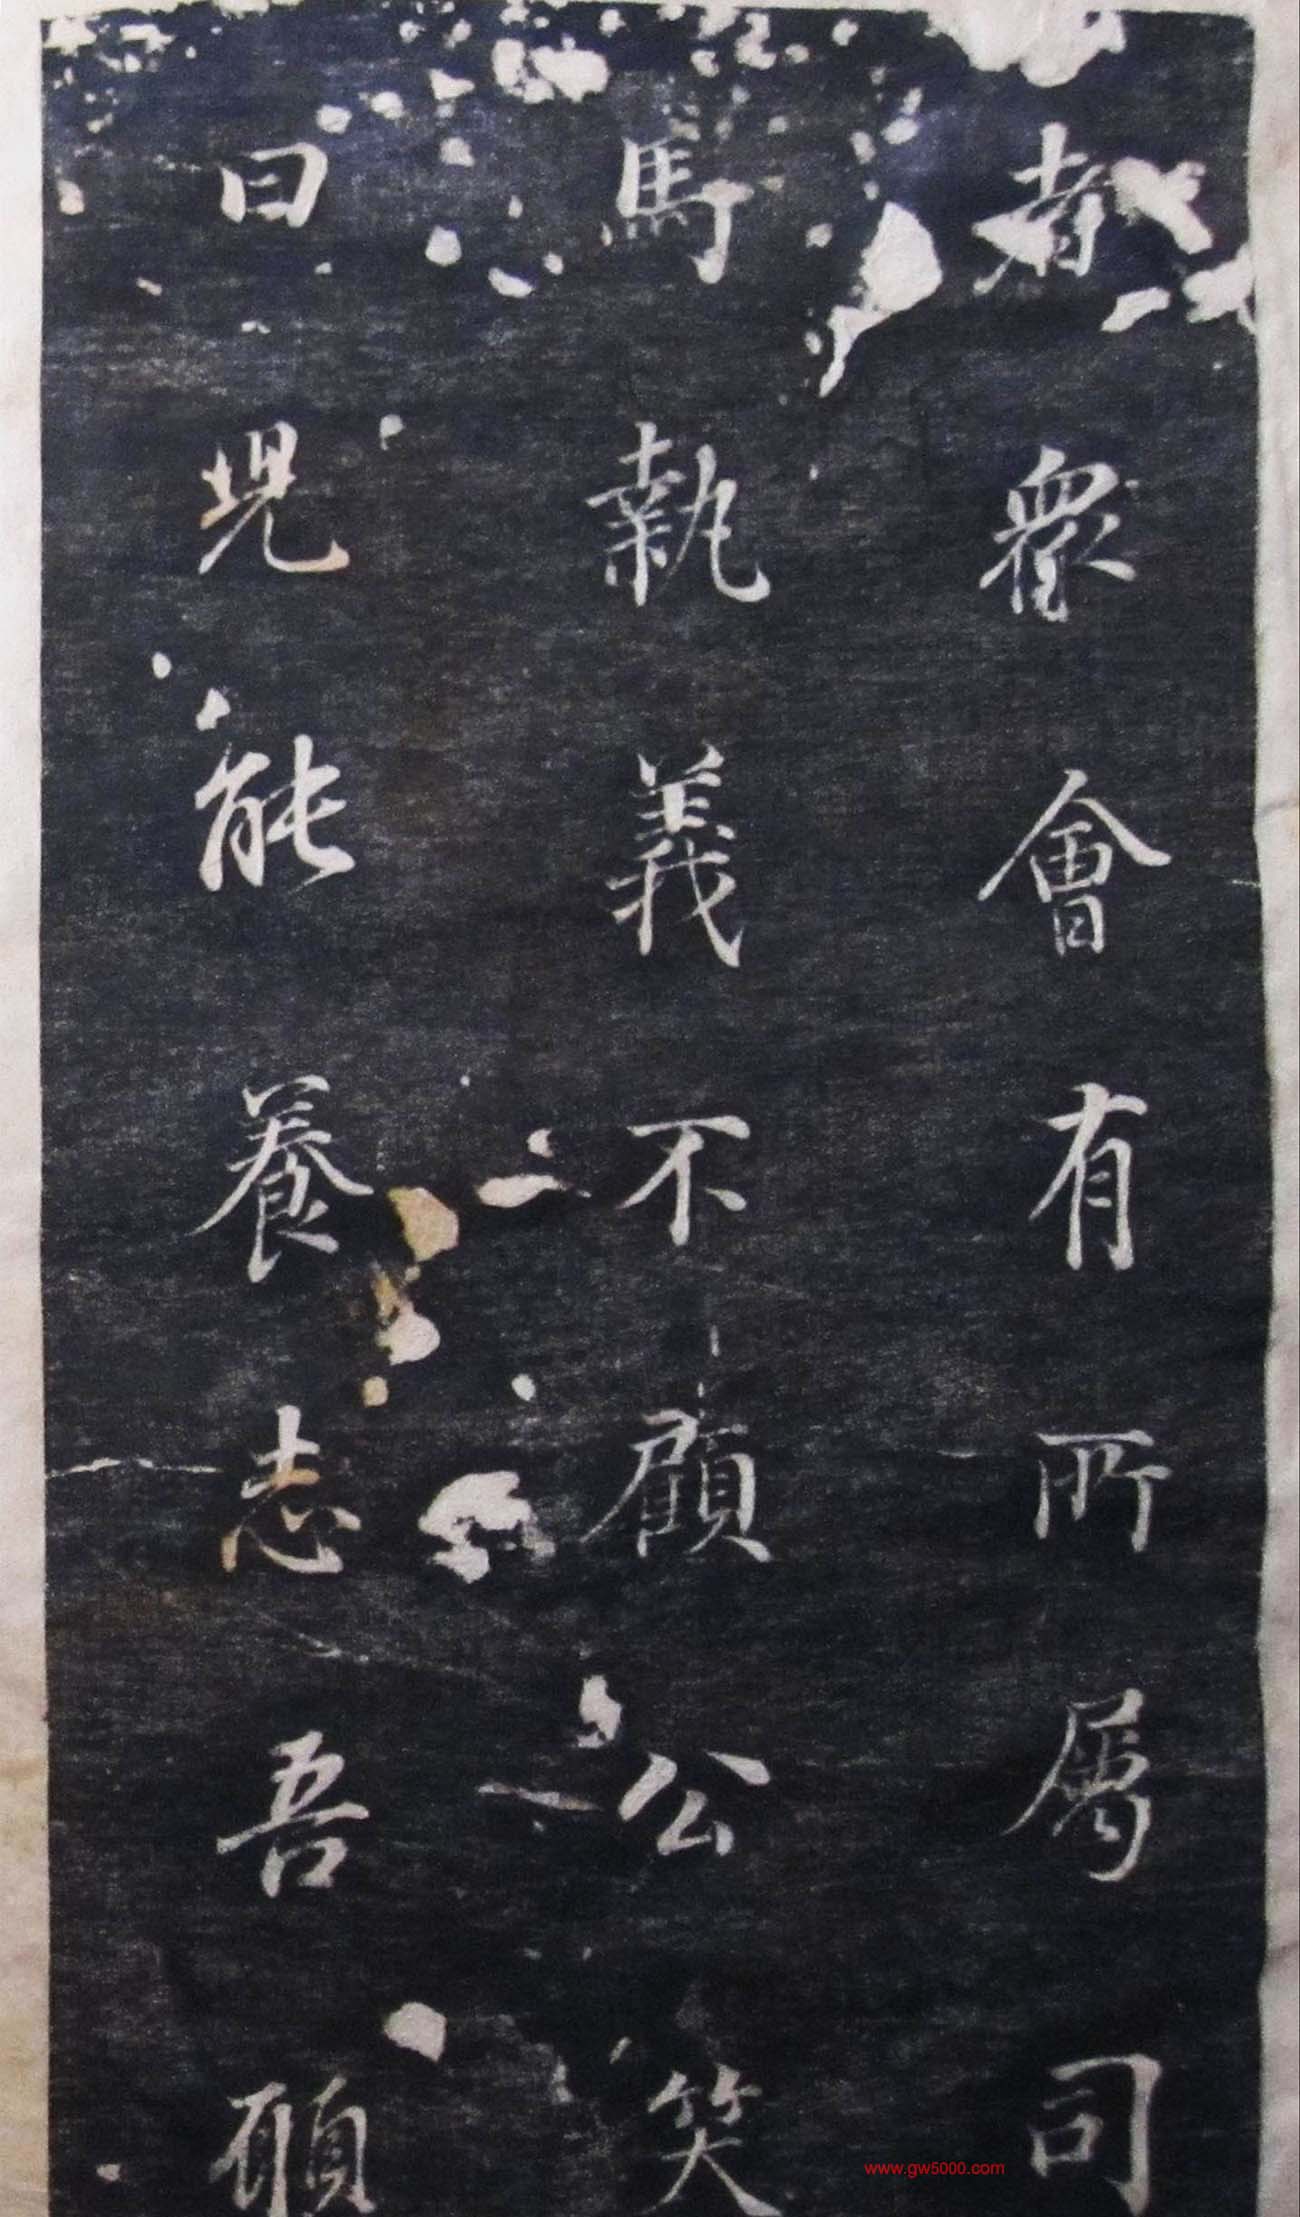 者眾會有所屬司
馬執義不顧公笑
曰児能養志吾願
www.gw5000.com